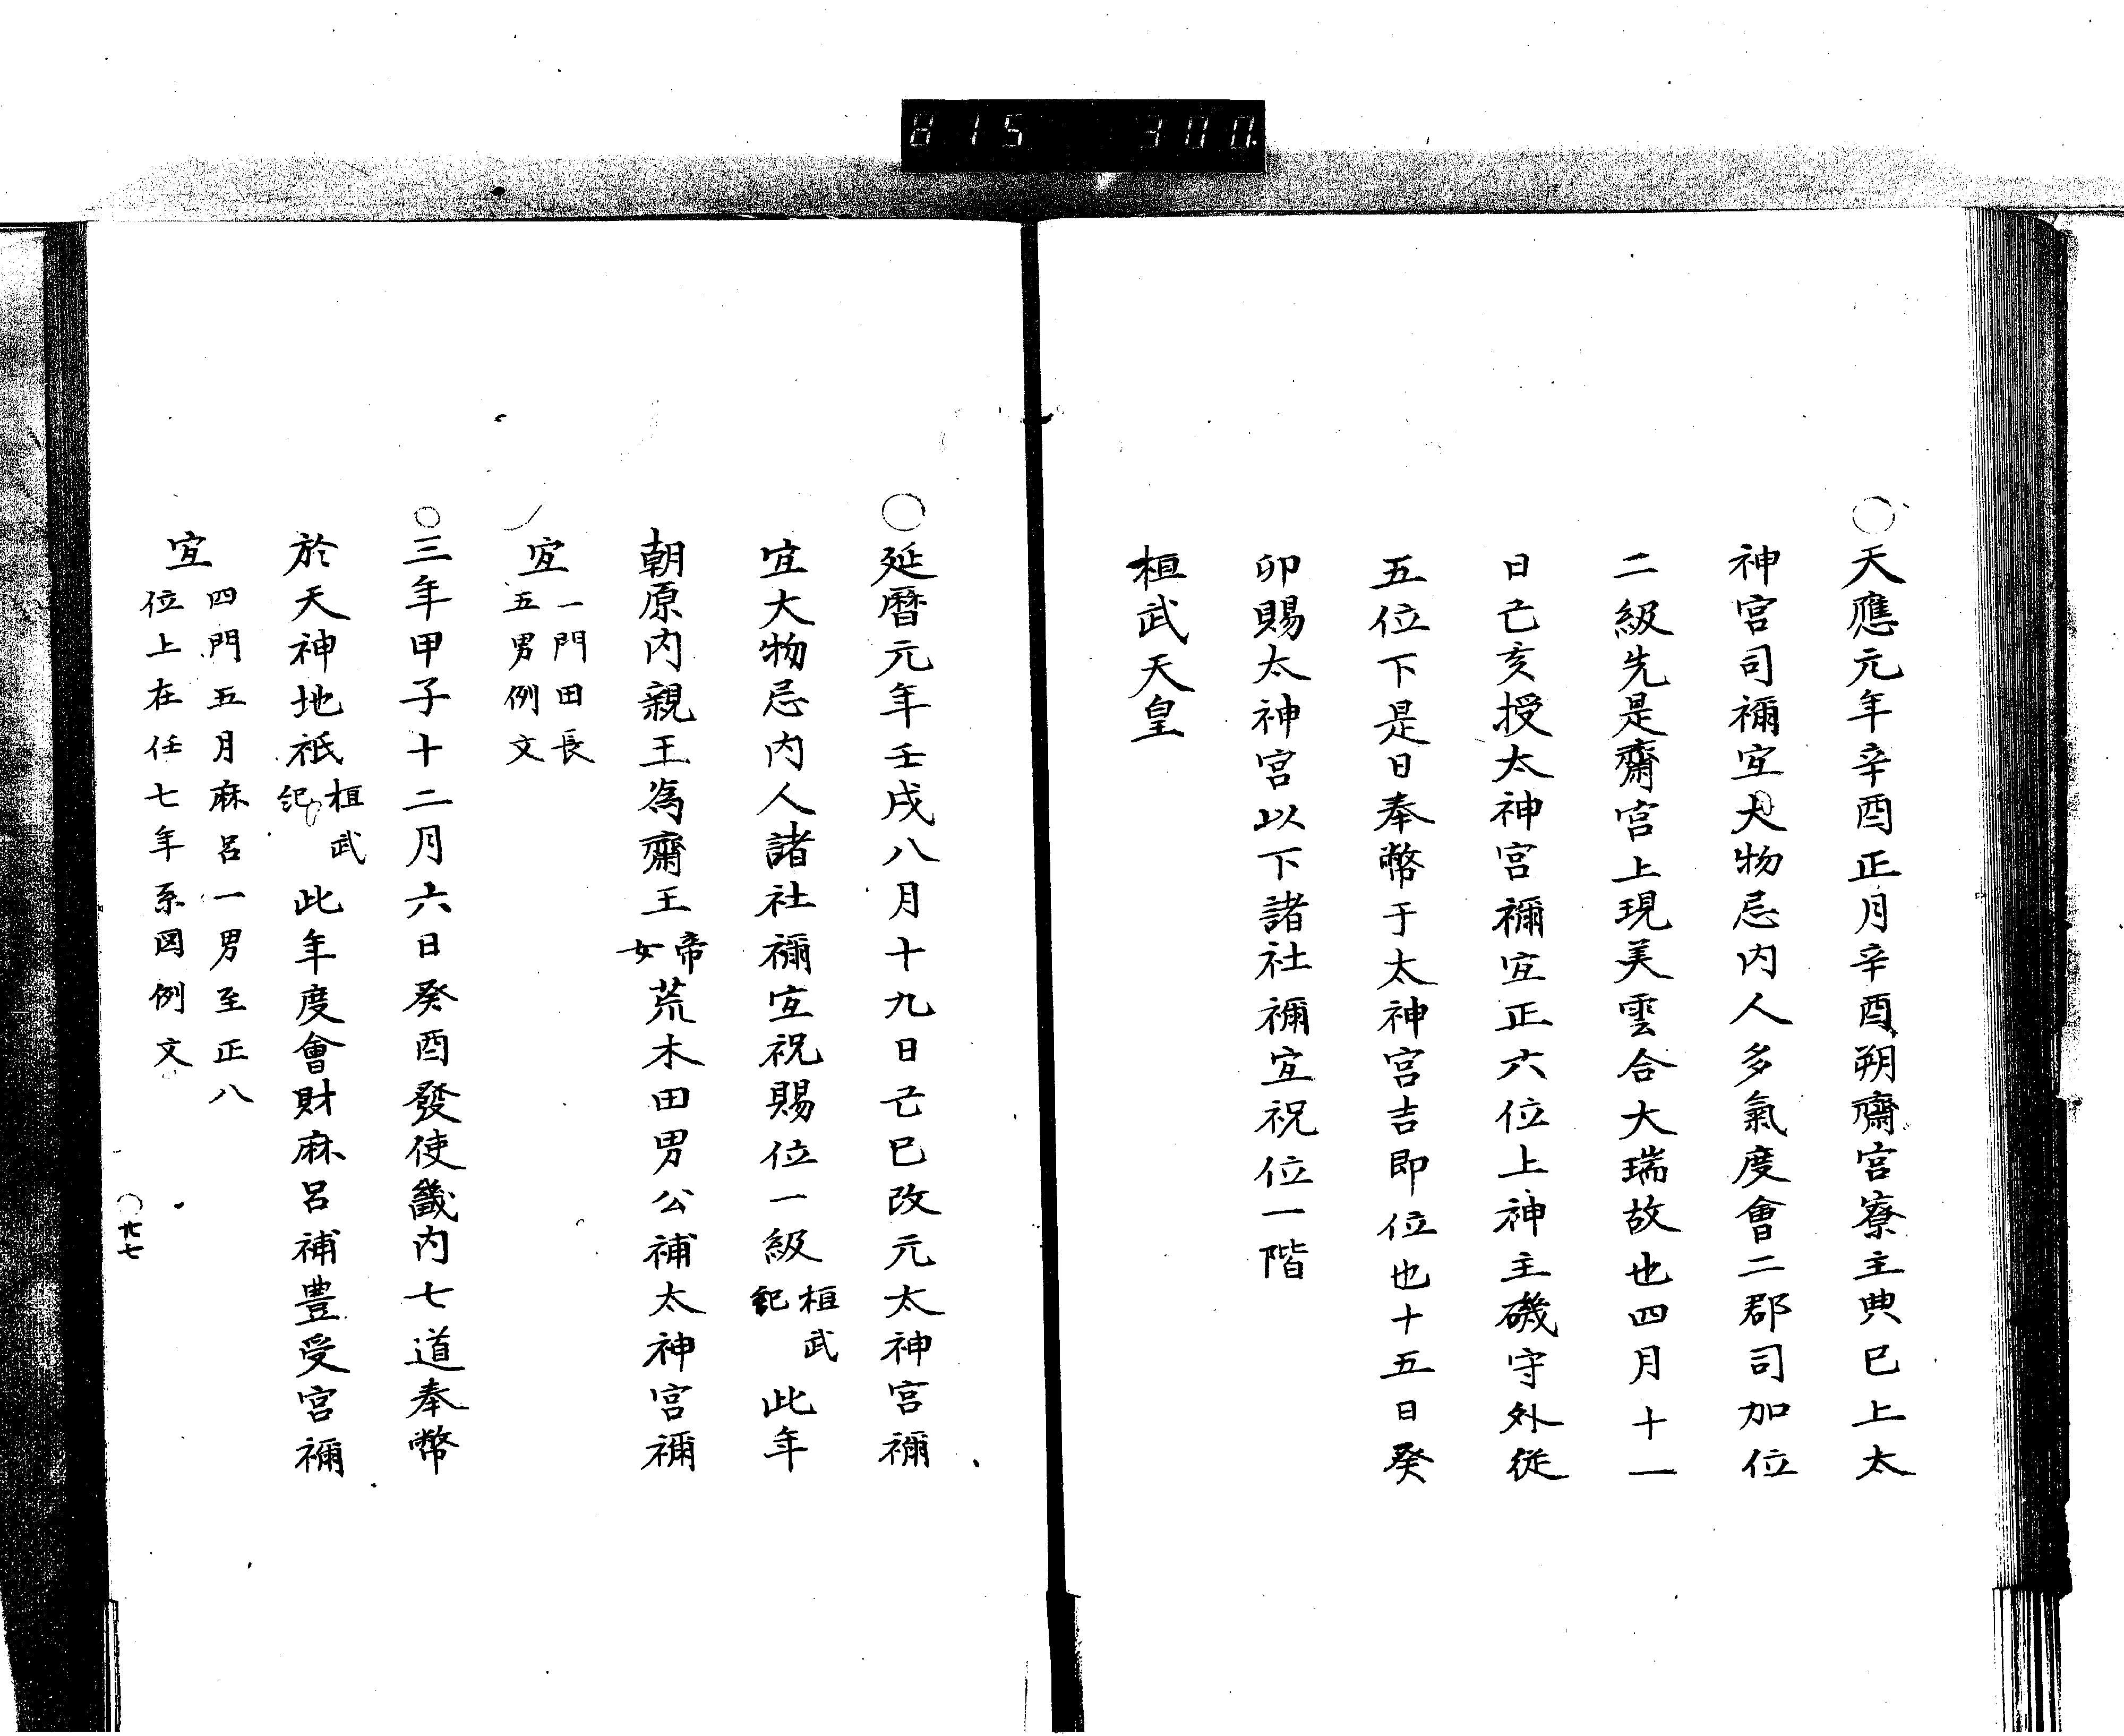 815 300
○天應元年辛酉正月辛酉朔齋宮寮主典已上太
神宮司禰宜大物忌内人多氣度會二郡司加位
二級先是齋宮上現美雲合大瑞故也四月十一
日己亥授太神宮禰宜正六位上神主磯守外從
五位下是日奉幣于太神宮吉即位也十五日癸
卯賜太神宮以下諸社禰宜祝位一階
桓武天皇
○延暦元年壬戌八月十九日己巳改元太神宮禰
宜大物忌内人諸社禰宜祝賜位一級桓武紀 此年
朝原内親王為齋王帝女荒木田男公補太神宮禰
宜一門田長
五男例文
○三年甲子十二月六日癸酉發使畿内七道奉幣
於天神地祇桓武紀 此年度會財麻呂補豊受宮禰
宜四門五月麻呂一男至正八
位上在任七年系図例文
○廿七